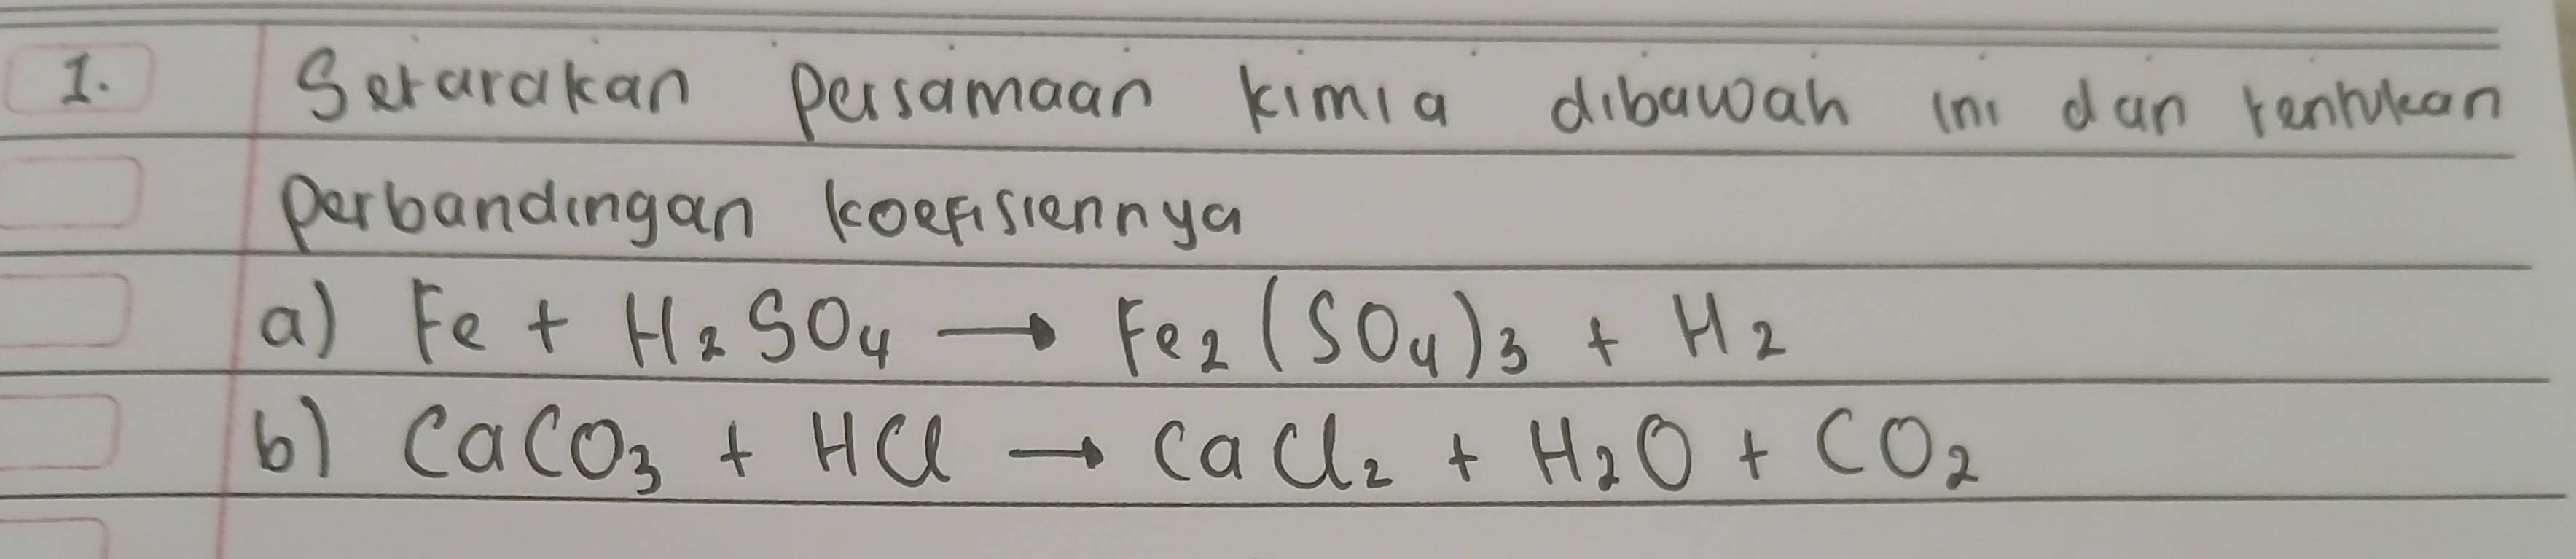 1. Setarakan persamaan kimia dibawah ini dan tentukan
perbandingan koefisiennya
a) Fe + H₂SO₄ → Fe₂(SO₄)₃ + H₂
b) CaCO₃ + HCl → CaCl₂ + H₂O + CO₂